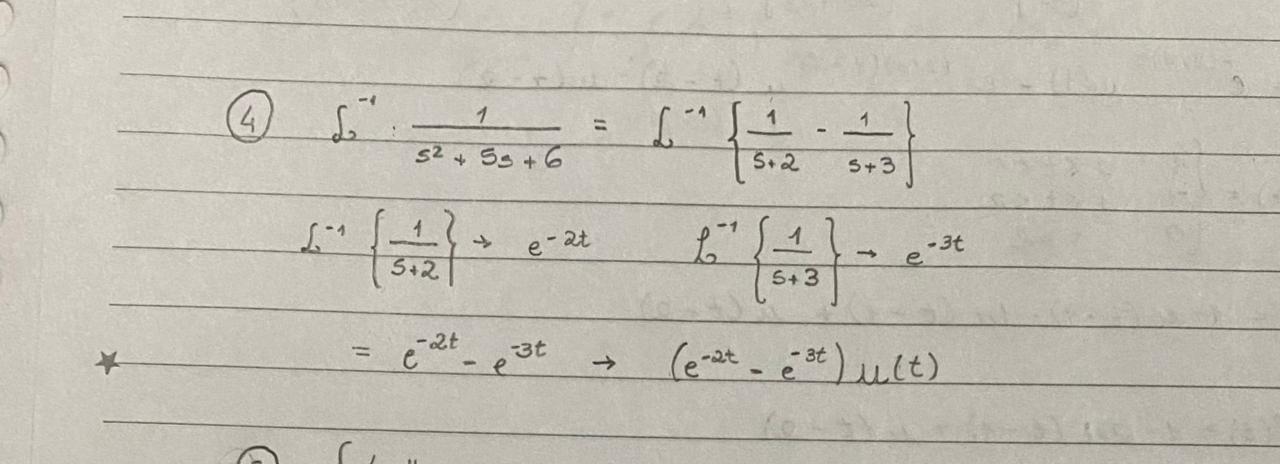 ④ ℒ⁻¹ : 1/(s² + 5s + 6) = ℒ⁻¹ {1/(s+2) - 1/(s+3)}
ℒ⁻¹ {1/(s+2)} → e^(-2t) ℒ⁻¹ {1/(s+3)} → e^(-3t)
★ = e^(-2t) - e^(-3t) → (e^(-2t) - e^(-3t)) u(t)